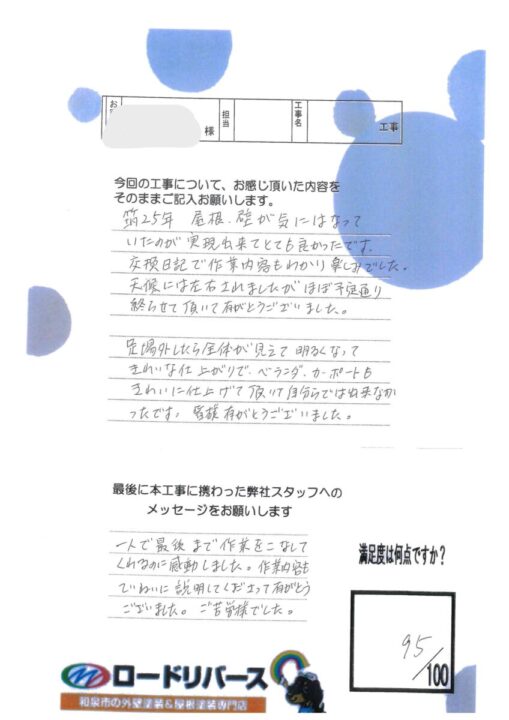 お
様
担当
工事名
工事
今回の工事について、お感じ頂いた内容を
そのままご記入お願いします。
築25年 屋根、壁が気にはなって
いたのが実現出来てとても良かったです。
交換日記で作業内容もわかり楽しみでした。
天候には左右されましたがほぼ予定通り
終らせて頂いて有がとうございました。
足場外したら全体が見えて明るくなって
きれいな仕上がりで、ベランダ、カーポートも
きれいに仕上げて頂いて自分らでは出来なか
ったです。皆様有がとうございました。
最後に本工事に携わった弊社スタッフへの
メッセージをお願いします
一人で最後まで作業をこなして
くれるのに感動しました。作業内容も
ていねいに説明してくださって有がとう
ございました。ご苦労様でした。
満足度は何点ですか?
95/100
ロードリバース
和泉市の外壁塗装&屋根塗装専門店